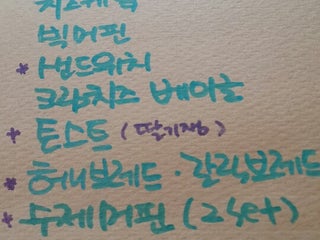 치즈케익
빅머핀
* 샌드위치
크림치즈 베이글
* 토스트 (딸기잼)
* 허니브레드 · 갈릭브레드
* 수제머핀 (2set)